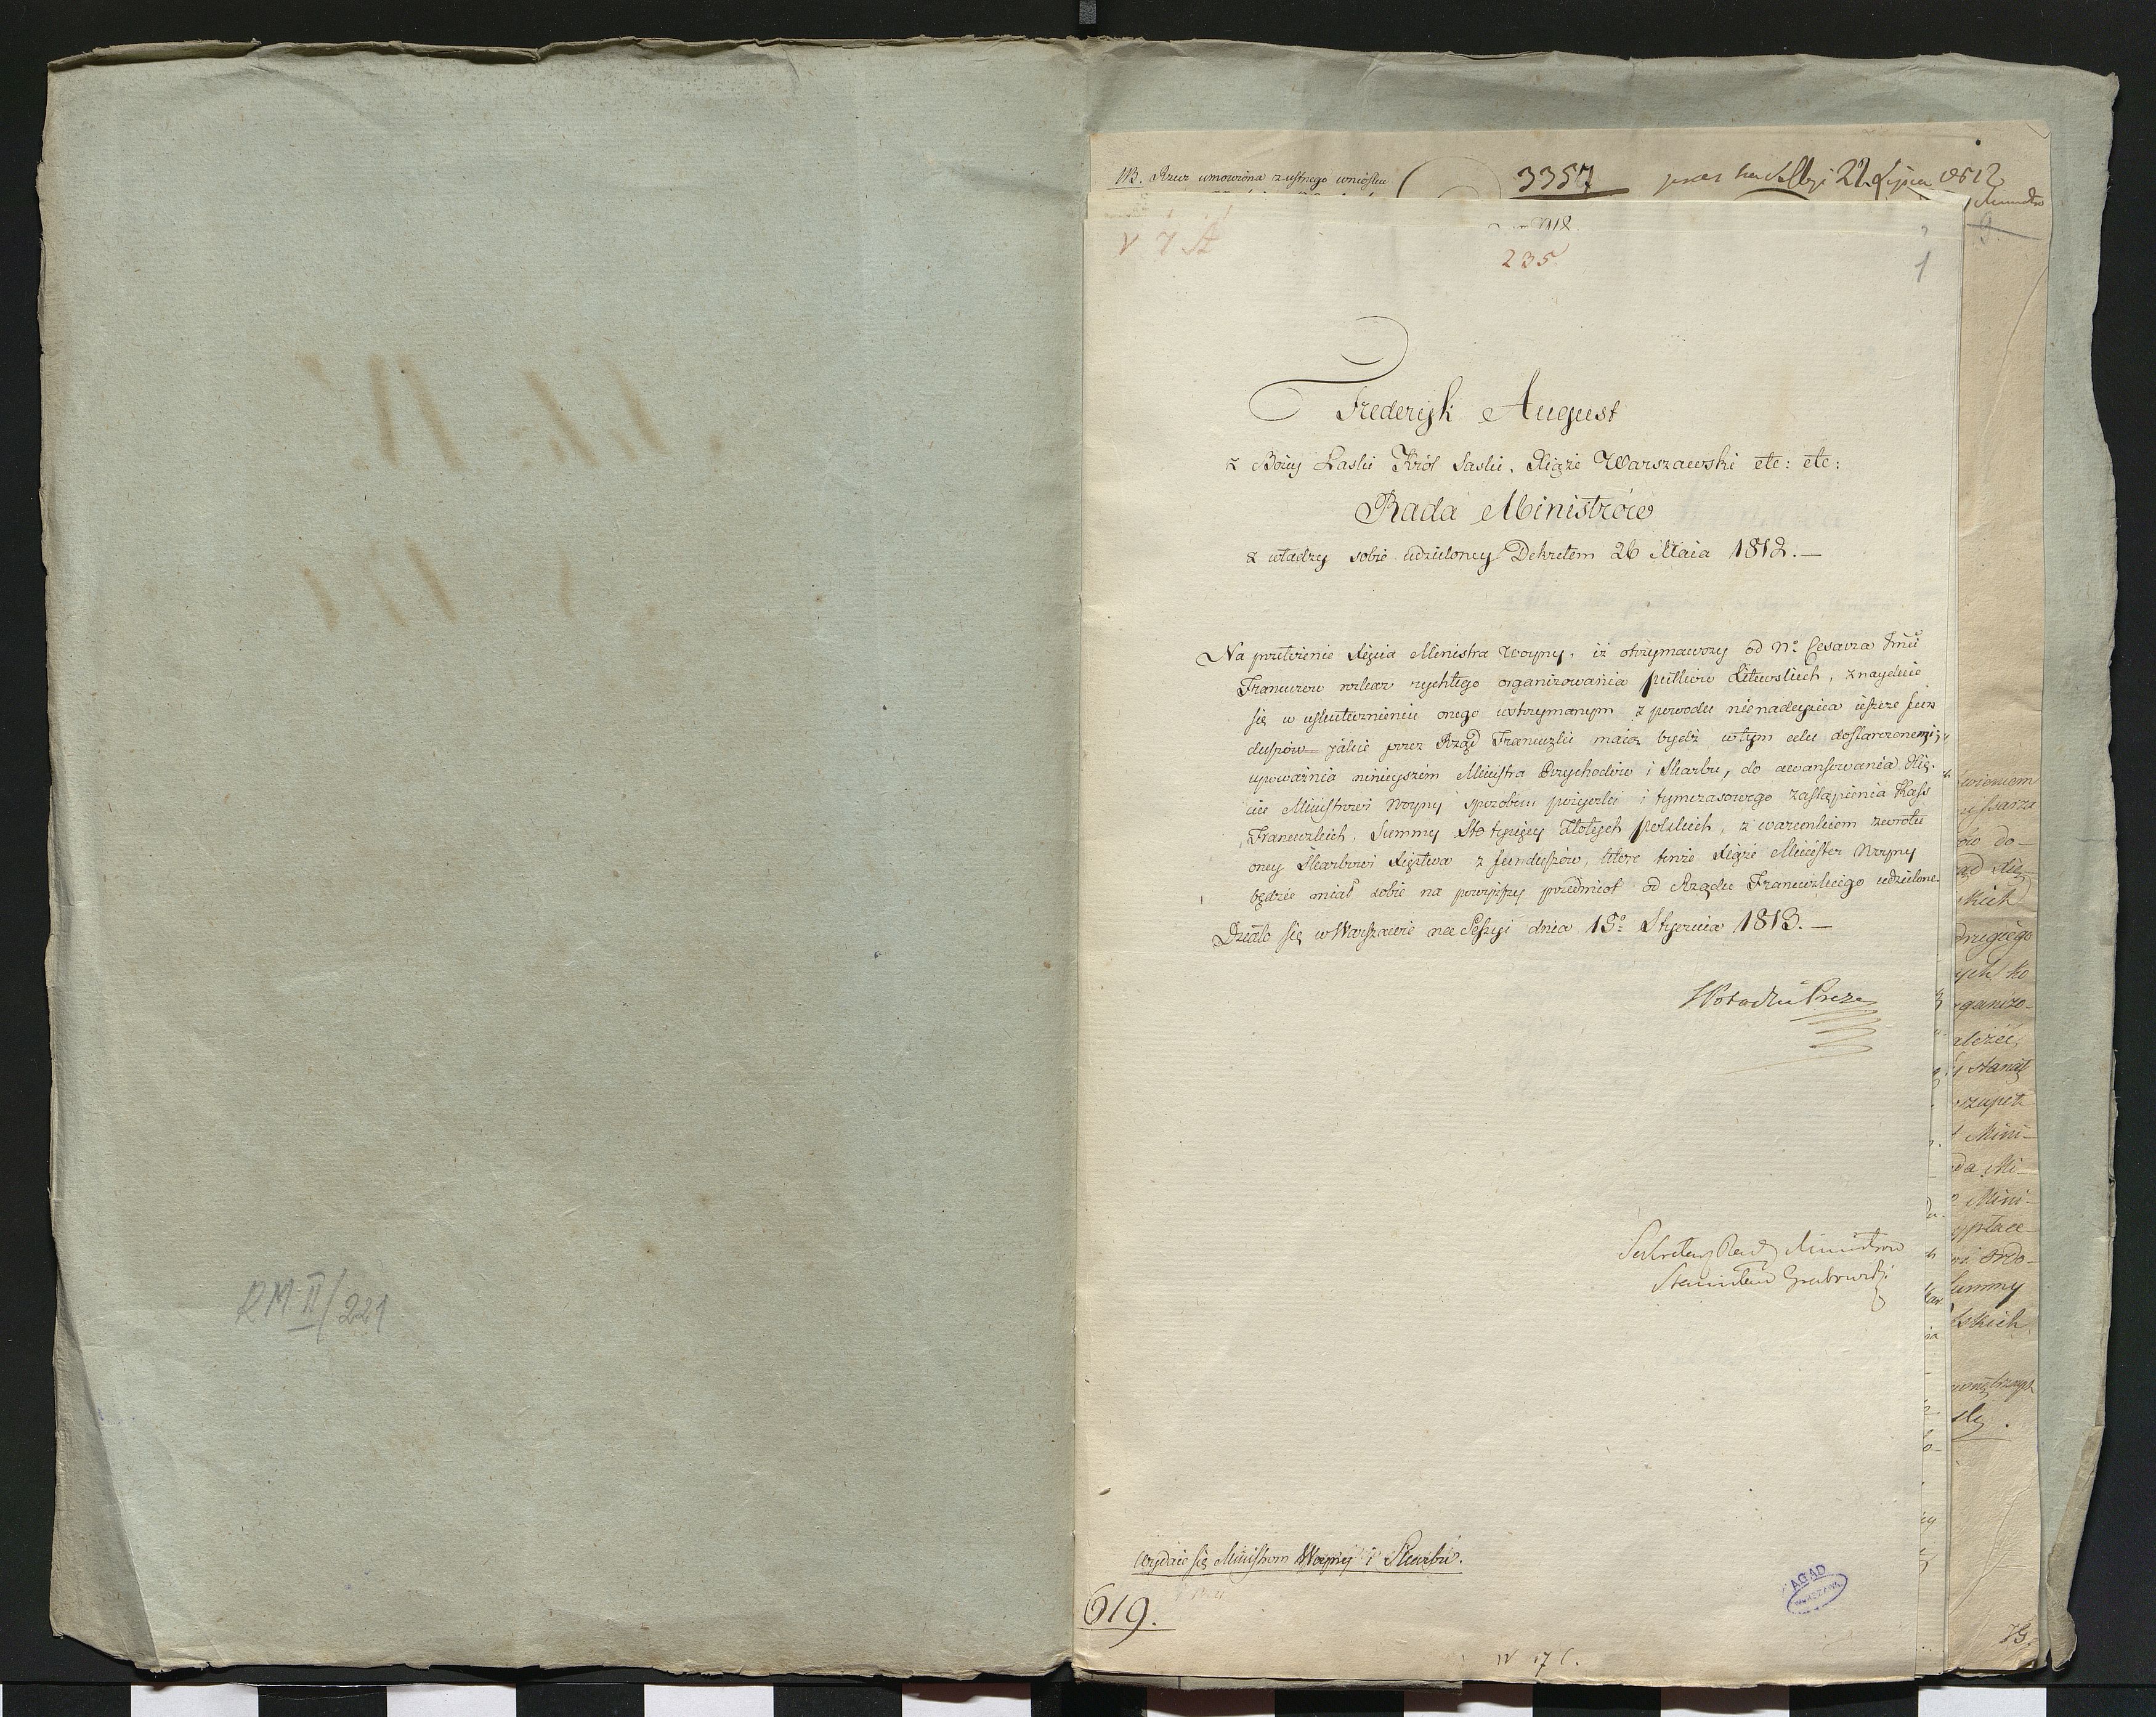 RM-II/221
NB. Rzecz umowiona z ustnego wniosku
3357
22 Lipca 1812
235
1
9
Frederyk August
z Bożey Łaski Król Saski, Xiąże Warszawski etc: etc:
Rada Ministrów
z władzy sobie udzieloney Dekretem 26 Maia 1812. —
Na przełożenie Xięcia Ministra Woyny, iż otrzymawszy od No Cesarza Jmci
Francuzow rozkaz rychłego organizowania pułkow Litewskich, znayduie
się w uskutecznieniu onego wstrzymanym z powodu nienadeyścia ieszcze fun
duszów jakie przez Rząd Francuzki maią bydź w tym celu dostarczonemi;
upoważnia ninieyszém Ministra Przychodów i Skarbu, do awansowania Xię-
ciu Ministrowi Woyny sposobem pożyczki i tymczasowego zastąpienia Kass
Francuzkich, Summy Sto tysięcy Złotych polskich, z warunkiem zwrotu
oney Skarbowi Xięstwa z funduszów, które tenże Xiąże Minister Woyny
będzie miał sobie na powyższy przedmiot od Rządu Francuzkiego udzielone.
Działo się w Warszawie na Sessyi dnia 15o Stycznia 1813. —
Potocki Prezes
Sekretarz Rady Ministrow
Stanisław Grabowski
Wydaie się Ministrom Woyny i Skarbu.
619.
AGAD
WARSZAWA